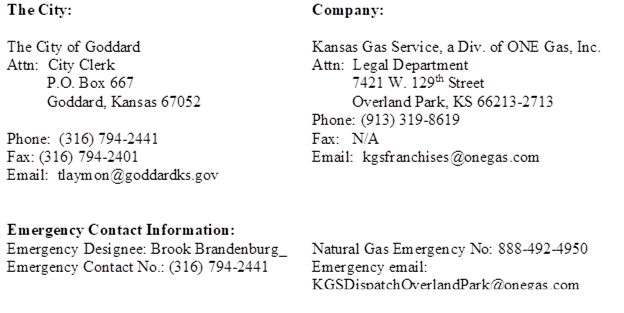 The City:
The City of Goddard
Attn: City Clerk
P.O. Box 667
Goddard, Kansas 67052
Phone: (316) 794-2441
Fax: (316) 794-2401
Email: tlaymon@goddardks.gov
Company:
Kansas Gas Service, a Div. of ONE Gas, Inc.
Attn: Legal Department
7421 W. 129th Street
Overland Park, KS 66213-2713
Phone: (913) 319-8619
Fax: N/A
Email: kgsfranchises@onegas.com
Emergency Contact Information:
Emergency Designee: Brook Brandenburg_
Emergency Contact No.: (316) 794-2441
Natural Gas Emergency No: 888-492-4950
Emergency email:
KGSDispatchOverlandPark@onegas.com